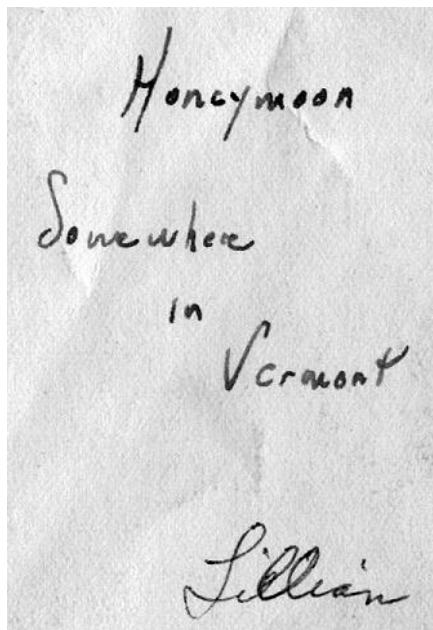 Honeymoon
Somewhere
in
Vermont
Lillian